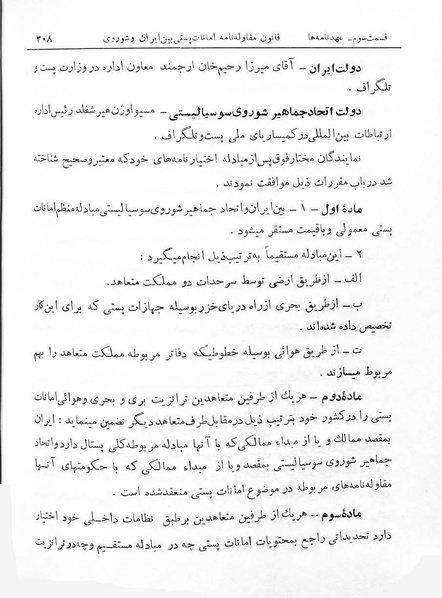 قسمت سوم ــ عهدنامه‌ها قانون مقاوله‌نامه امانات پستی بین ایران و شوروی ۳۰۸
دولت ایران ــ آقای میرزا رحیم‌خان ارجمند معاون اداره در وزارت پست و
تلگراف .
دولت اتحاد جماهیر شوروی سوسیالیستی ــ مسیو اوژن هیرشفلد رئیس اداره
ارتباطات بین‌المللی در کمیساریای ملی پست و تلگراف .
نمایندگان مختار فوق پس از مبادله اختیارنامه‌های خود که معتبر و صحیح شناخته
شد در باب مقررات ذیل موافقت نمودند .
مادهٔ اول ــ ۱ ــ بین ایران و اتحاد جماهیر شوروی سوسیالیستی مبادله منظم امانات
پستی معمولی و با قیمت مستقر میشود .
۲ ــ این مبادله مستقیماً به ترتیب ذیل انجام میگیرد :
الف ــ از طریق ارضی توسط سرحدات دو مملکت متعاهد.
ب ــ از طریق بحری از راه دریای خزر بوسیله جهازات پستی که برای این کار
تخصیص داده شده‌اند .
ت ــ از طریق هوائی بوسیله خطوطیکه دفاتر مربوطه مملکت متعاهد را بهم
مربوط میسازند .
مادهٔ دوم ــ هر یك از طرفین متعاهدین ترانزیت بری و بحری و هوائی امانات
پستی را در کشور خود بترتیب ذیل در مقابل طرف متعاهد دیگر تضمین مینماید : ایران
بمقصد ممالك و یا از مبداء ممالکی که با آنها مبادله مربوطه کلی پستال دارد و اتحاد
جماهیر شوروی سوسیالیستی بمقصد و یا از مبداء ممالکی که با حکومتهای آنها
مقاوله‌نامه‌های مربوطه در موضوع امانات پستی منعقد شده است .
مادهٔ سوم ــ هر یك از طرفین متعاهدین بر طبق نظامات داخلی خود اختیار
دارد تحدیداتی راجع بمحتویات امانات پستی چه در مبادله مستقیم و چه در ترانزیت